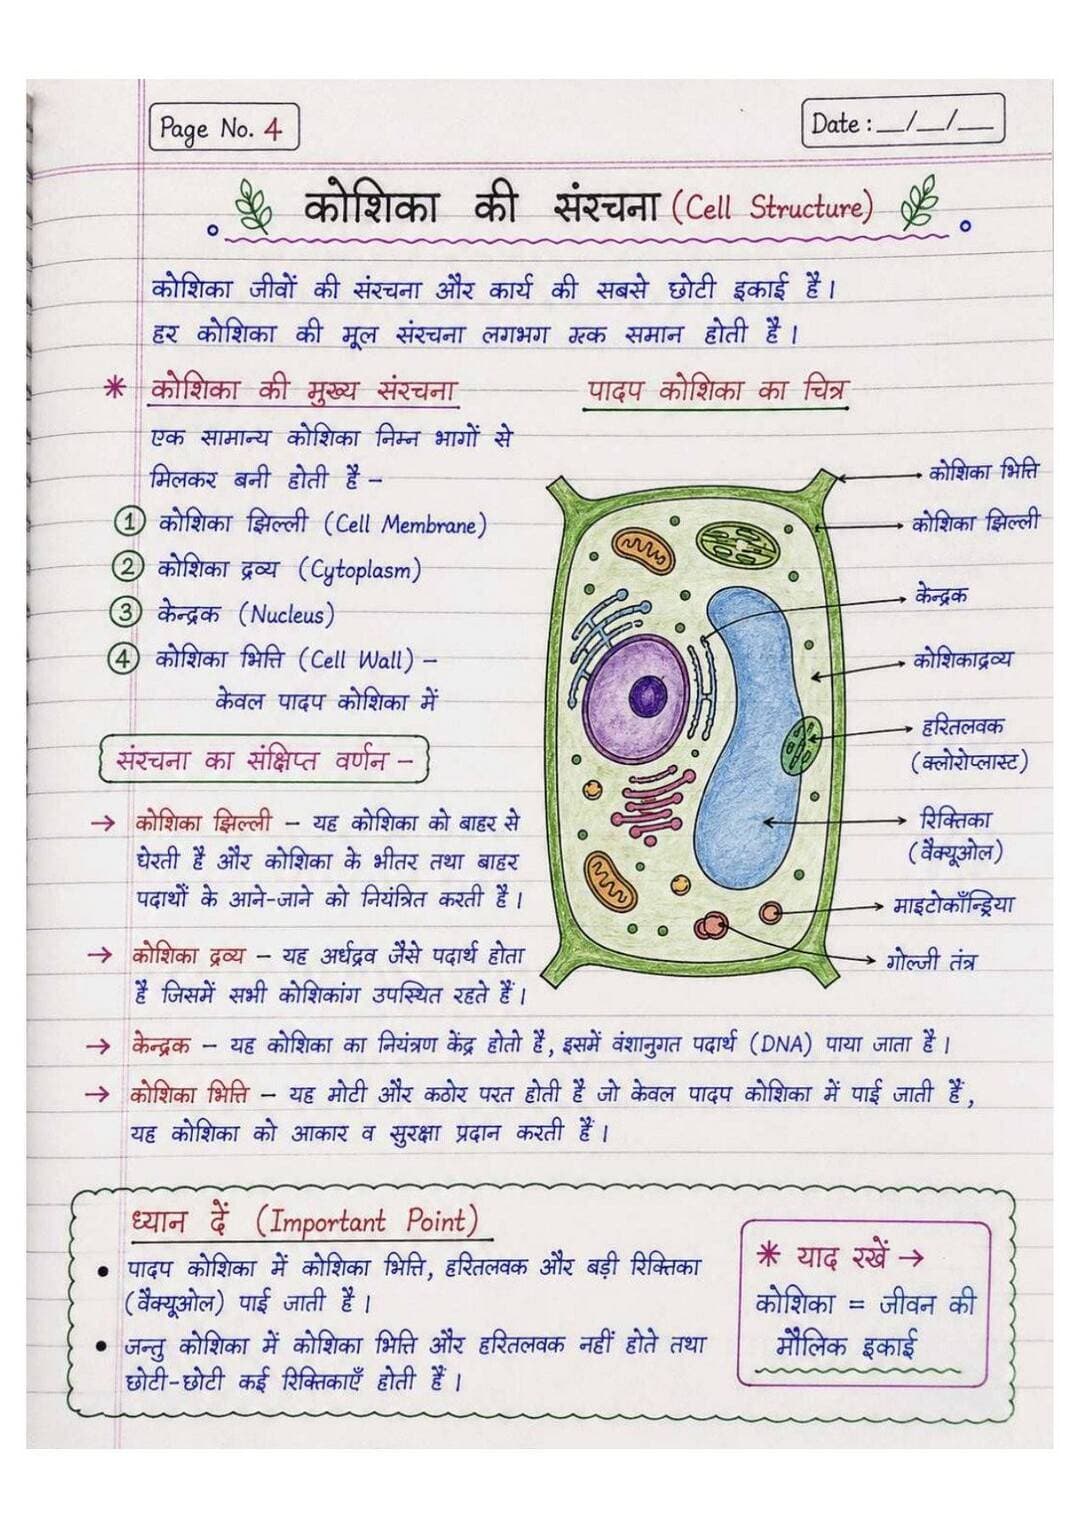 Page No. 4
Date : __/__/__
कोशिका की संरचना (Cell Structure)
कोशिका जीवों की संरचना और कार्य की सबसे छोटी इकाई है।
हर कोशिका की मूल संरचना लगभग एक समान होती है।
* कोशिका की मुख्य संरचना
एक सामान्य कोशिका निम्न भागों से
मिलकर बनी होती है -
① कोशिका झिल्ली (Cell Membrane)
② कोशिका द्रव्य (Cytoplasm)
③ केन्द्रक (Nucleus)
④ कोशिका भित्ति (Cell Wall) -
केवल पादप कोशिका में
पादप कोशिका का चित्र
कोशिका भित्ति
कोशिका झिल्ली
केन्द्रक
कोशिकाद्रव्य
हरितलवक
(क्लोरोप्लास्ट)
रिक्तिका
(वैक्यूओल)
माइटोकाँन्ड्रिया
गोल्जी तंत्र
संरचना का संक्षिप्त वर्णन -
→ कोशिका झिल्ली - यह कोशिका को बाहर से
घेरती है और कोशिका के भीतर तथा बाहर
पदार्थों के आने-जाने को नियंत्रित करती है।
→ कोशिका द्रव्य - यह अर्धद्रव जैसे पदार्थ होता
है जिसमें सभी कोशिकांग उपस्थित रहते हैं।
→ केन्द्रक - यह कोशिका का नियंत्रण केंद्र होतो है, इसमें वंशानुगत पदार्थ (DNA) पाया जाता है।
→ कोशिका भित्ति - यह मोटी और कठोर परत होती है जो केवल पादप कोशिका में पाई जाती हैं,
यह कोशिका को आकार व सुरक्षा प्रदान करती हैं।
ध्यान दें (Important Point)
• पादप कोशिका में कोशिका भित्ति, हरितलवक और बड़ी रिक्तिका
(वैक्यूओल) पाई जाती है।
• जन्तु कोशिका में कोशिका भित्ति और हरितलवक नहीं होते तथा
छोटी-छोटी कई रिक्तिकाएँ होती हैं।
* याद रखें →
कोशिका = जीवन की
मौलिक इकाई